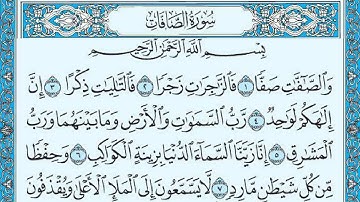 سُورَةُ الصَّافَّاتِ
بِسْمِ اللَّهِ الرَّحْمَٰنِ الرَّحِيمِ
وَالصَّٰٓفَّٰتِ صَفًّا ١ فَالزَّٰجِرَٰتِ زَجْرًا ٢ فَالتَّٰلِيَٰتِ ذِكْرًا ٣ إِنَّ
إِلَٰهَكُمْ لَوَٰحِدٌ ٤ رَّبُّ السَّمَٰوَٰتِ وَالْأَرْضِ وَمَا بَيْنَهُمَا وَرَبُّ
الْمَشَٰرِقِ ٥ إِنَّا زَيَّنَّا السَّمَآءَ الدُّنْيَا بِزِينَةٍ الْكَوَاكِبِ ٦ وَحِفْظًا
مِّن كُلِّ شَيْطَٰنٍ مَّارِدٍ ٧ لَّا يَسَّمَّعُونَ إِلَى الْمَلَإِ الْأَعْلَىٰ وَيُقْذَفُونَ